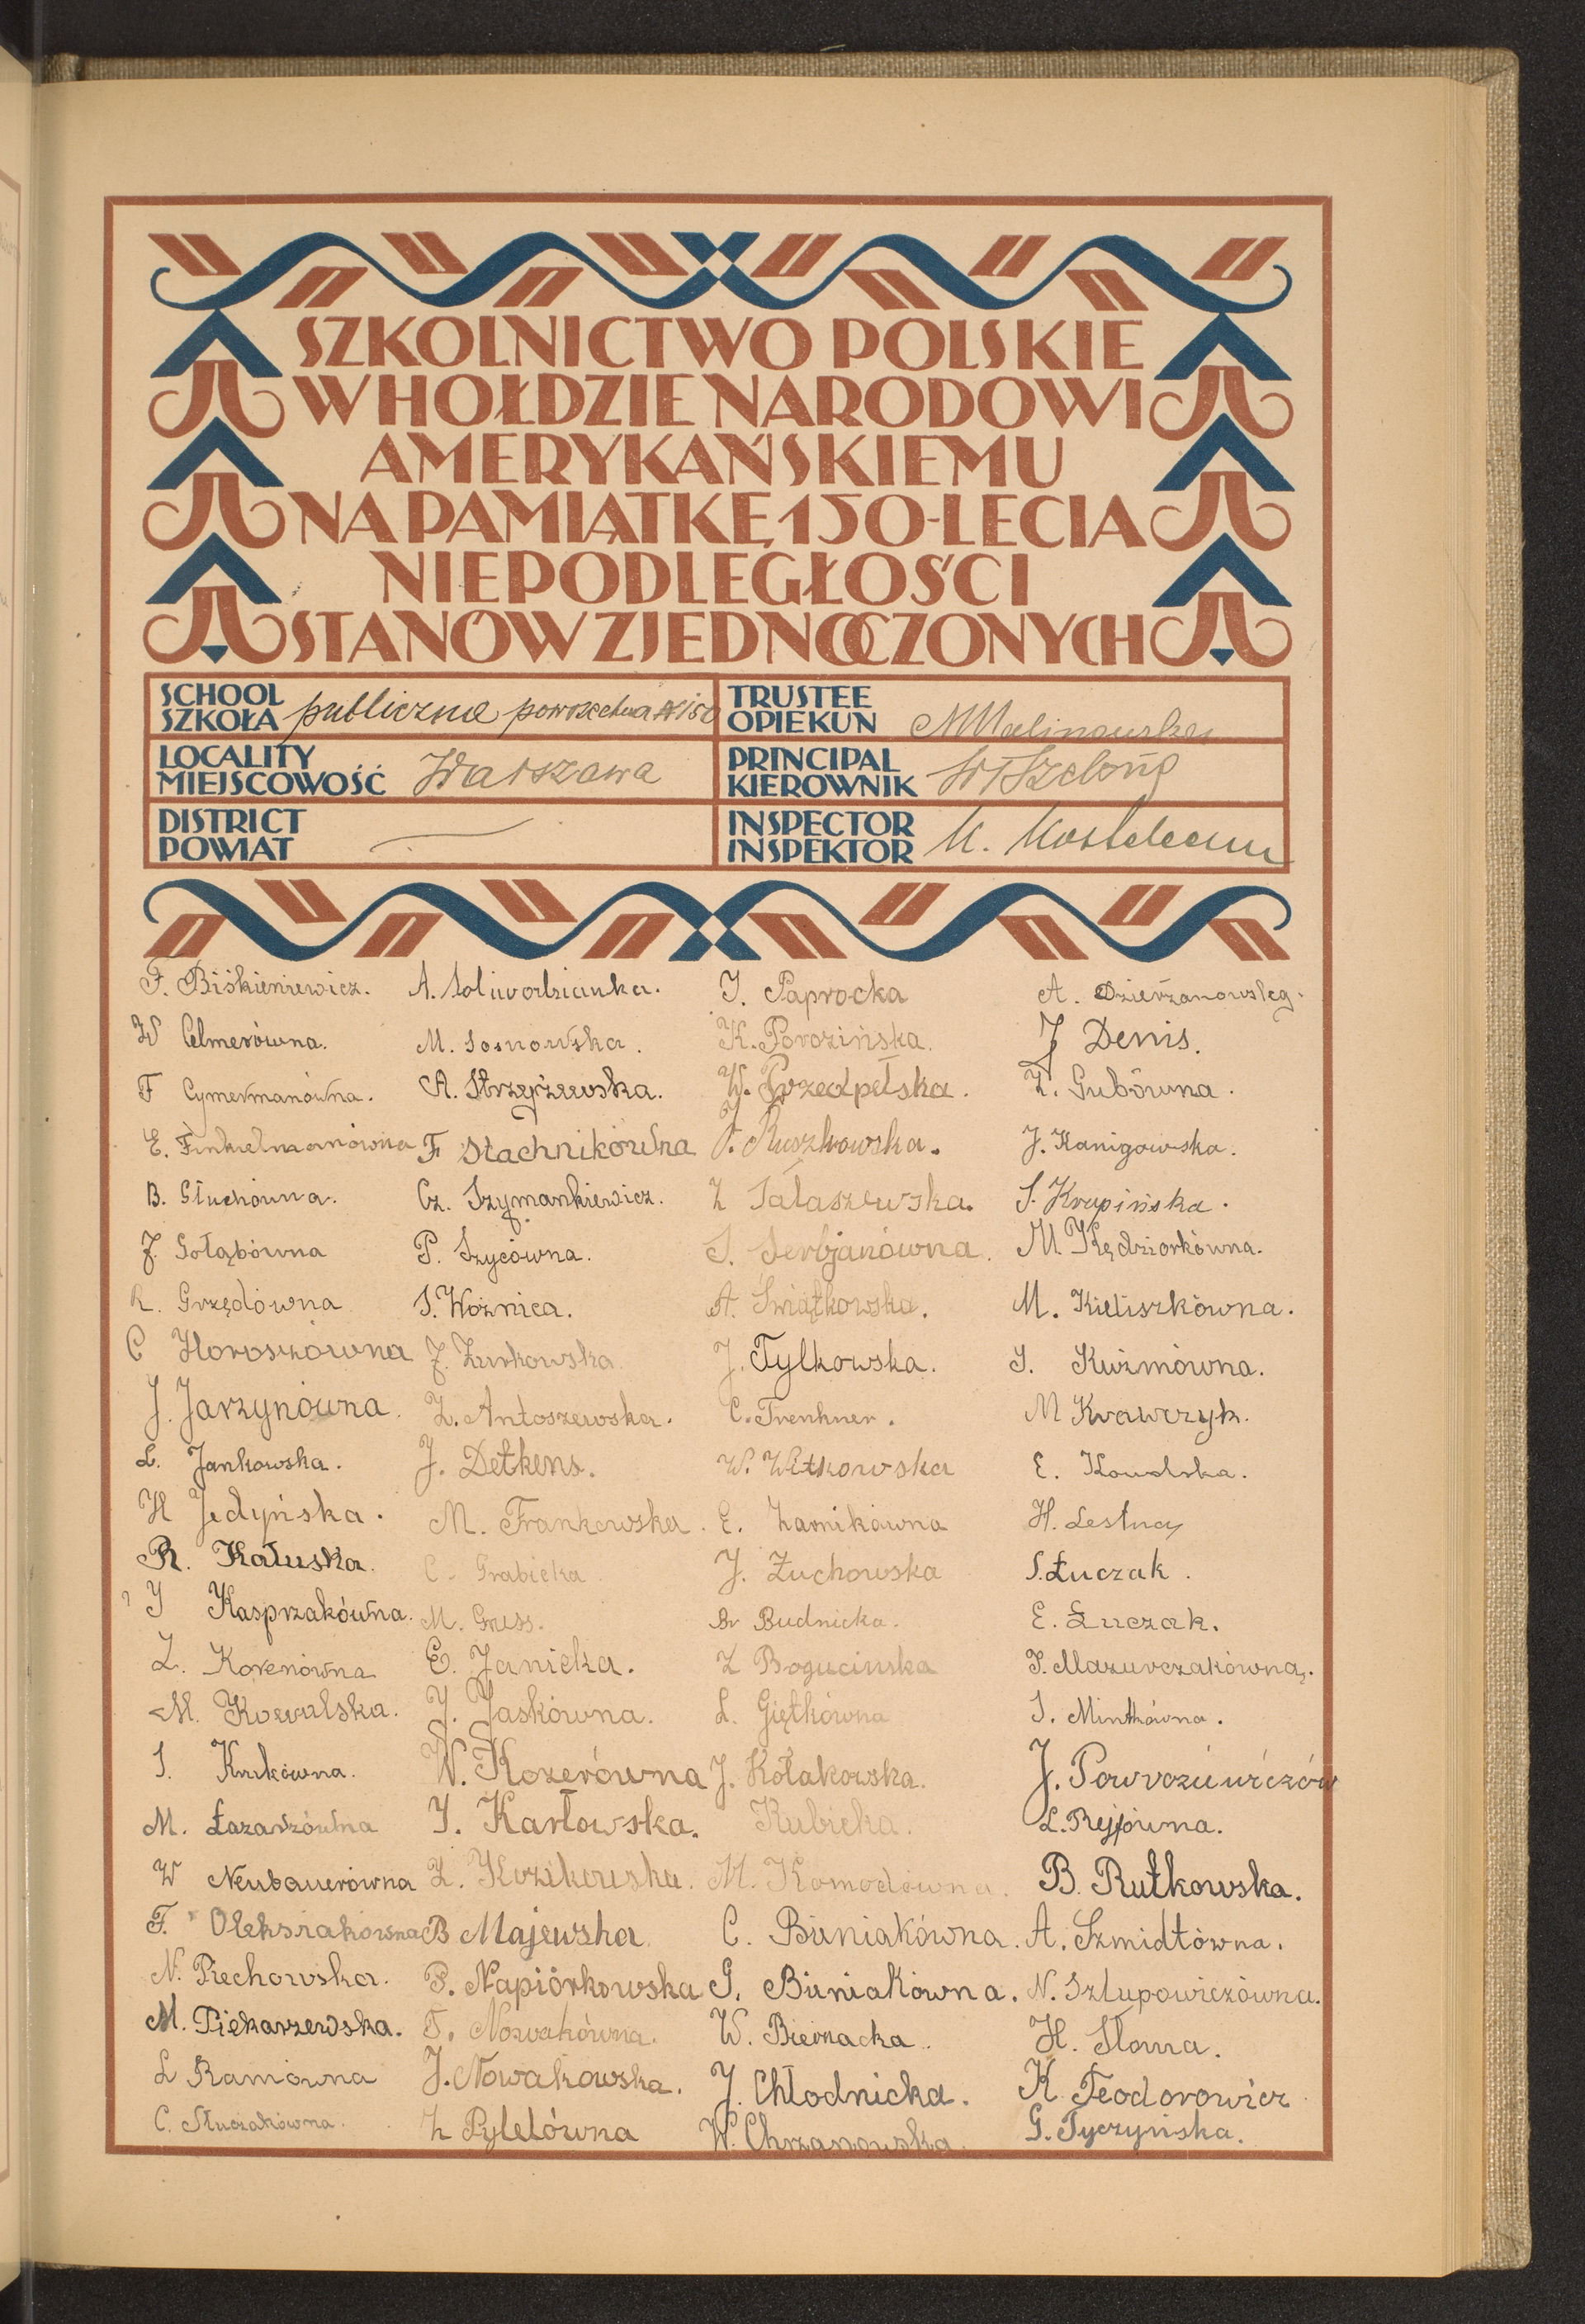 SZKOLNICTWO POLSKIE
W HOŁDZIE NARODOWI
AMERYKAŃSKIEMU
NA PAMIĄTKĘ 150-LECIA
NIEPODLEGŁOŚCI
STANÓW ZJEDNOCZONYCH
SCHOOL
SZKOŁA publiczna powszechna № 150
TRUSTEE
OPIEKUN MMalinowska
LOCALITY
MIEJSCOWOŚĆ Warszawa
PRINCIPAL
KIEROWNIK
DISTRICT
POWIAT —
INSPECTOR
INSPEKTOR
F. Biśkieniewicz.
W Celmerówna.
F Cymermanówna.
E. Finkielmanówna
B. Głuchówna.
J. Gołąbówna
R. Grzędówna
C Horoszówna
J. Jarzynówna.
L. Jankowska.
H Jedyńska.
R. Kałuska.
J Kasprzakówna.
Z. Korenówna
M. Kowalska.
I. Krukówna.
M. Łazarzówna
W Neubauerówna
F. Oleksiakówna
N. Piechowska.
M. Piekarzewska.
L Ramówna
C. Słuczakówna.
A. Soliwodzianka.
M. Sosnowska.
A. Strzyżewska.
F Stachnikówna
Cz. Szymankiewicz.
P. Szycówna.
S. Woźnica.
J. Żurkowska.
Z. Antoszewska.
J. Detkens.
M. Frankowska.
C. Grabicka
M. Gress.
E. Janicka.
J. Jaskówna.
W. Kozerówna
J. Karłowska.
Z. Kozikowska.
B Majewska
P. Napiórkowska
F. Nowakówna.
J. Nowakowska.
Z Pylelówna
J. Paprocka
K. Porozińska.
W. Przedpełska.
J. Ruszkowska.
Z Sałaszewska.
S. Serbjanówna.
A. Świątkowska.
J. Tylkowska.
C. Trenkner.
W. Witkowska
E. Żarnikówna
J. Żuchowska
Br Budnicka.
Z Bogucinska
L. Giętkówna
J. Kołakowska.
Kubicka.
M. Komodówna.
C. Bieniakówna.
G. Bieniakówna.
W. Biernacka.
J. Chłodnicka.
W. Chrzanowska.
A. Dzierżanowska.
J Denis.
Z. Gubówna.
J. Kanigowska.
S. Krupińska.
M. Kędziorkówna.
M. Kieliszkówna.
J. Kuźmówna.
M Krawczyk.
E. Kowalska.
H. Lestna
S. Łuczak.
E. Łuczak.
J. Mazurczakówna.
J. Mintkówna.
J.
L. Rejfówna.
B. Rutkowska.
A. Szmidtówna.
N. Szlupowiczówna.
H. Słowa.
K. Teodorowicz
G. Tyczyńska.